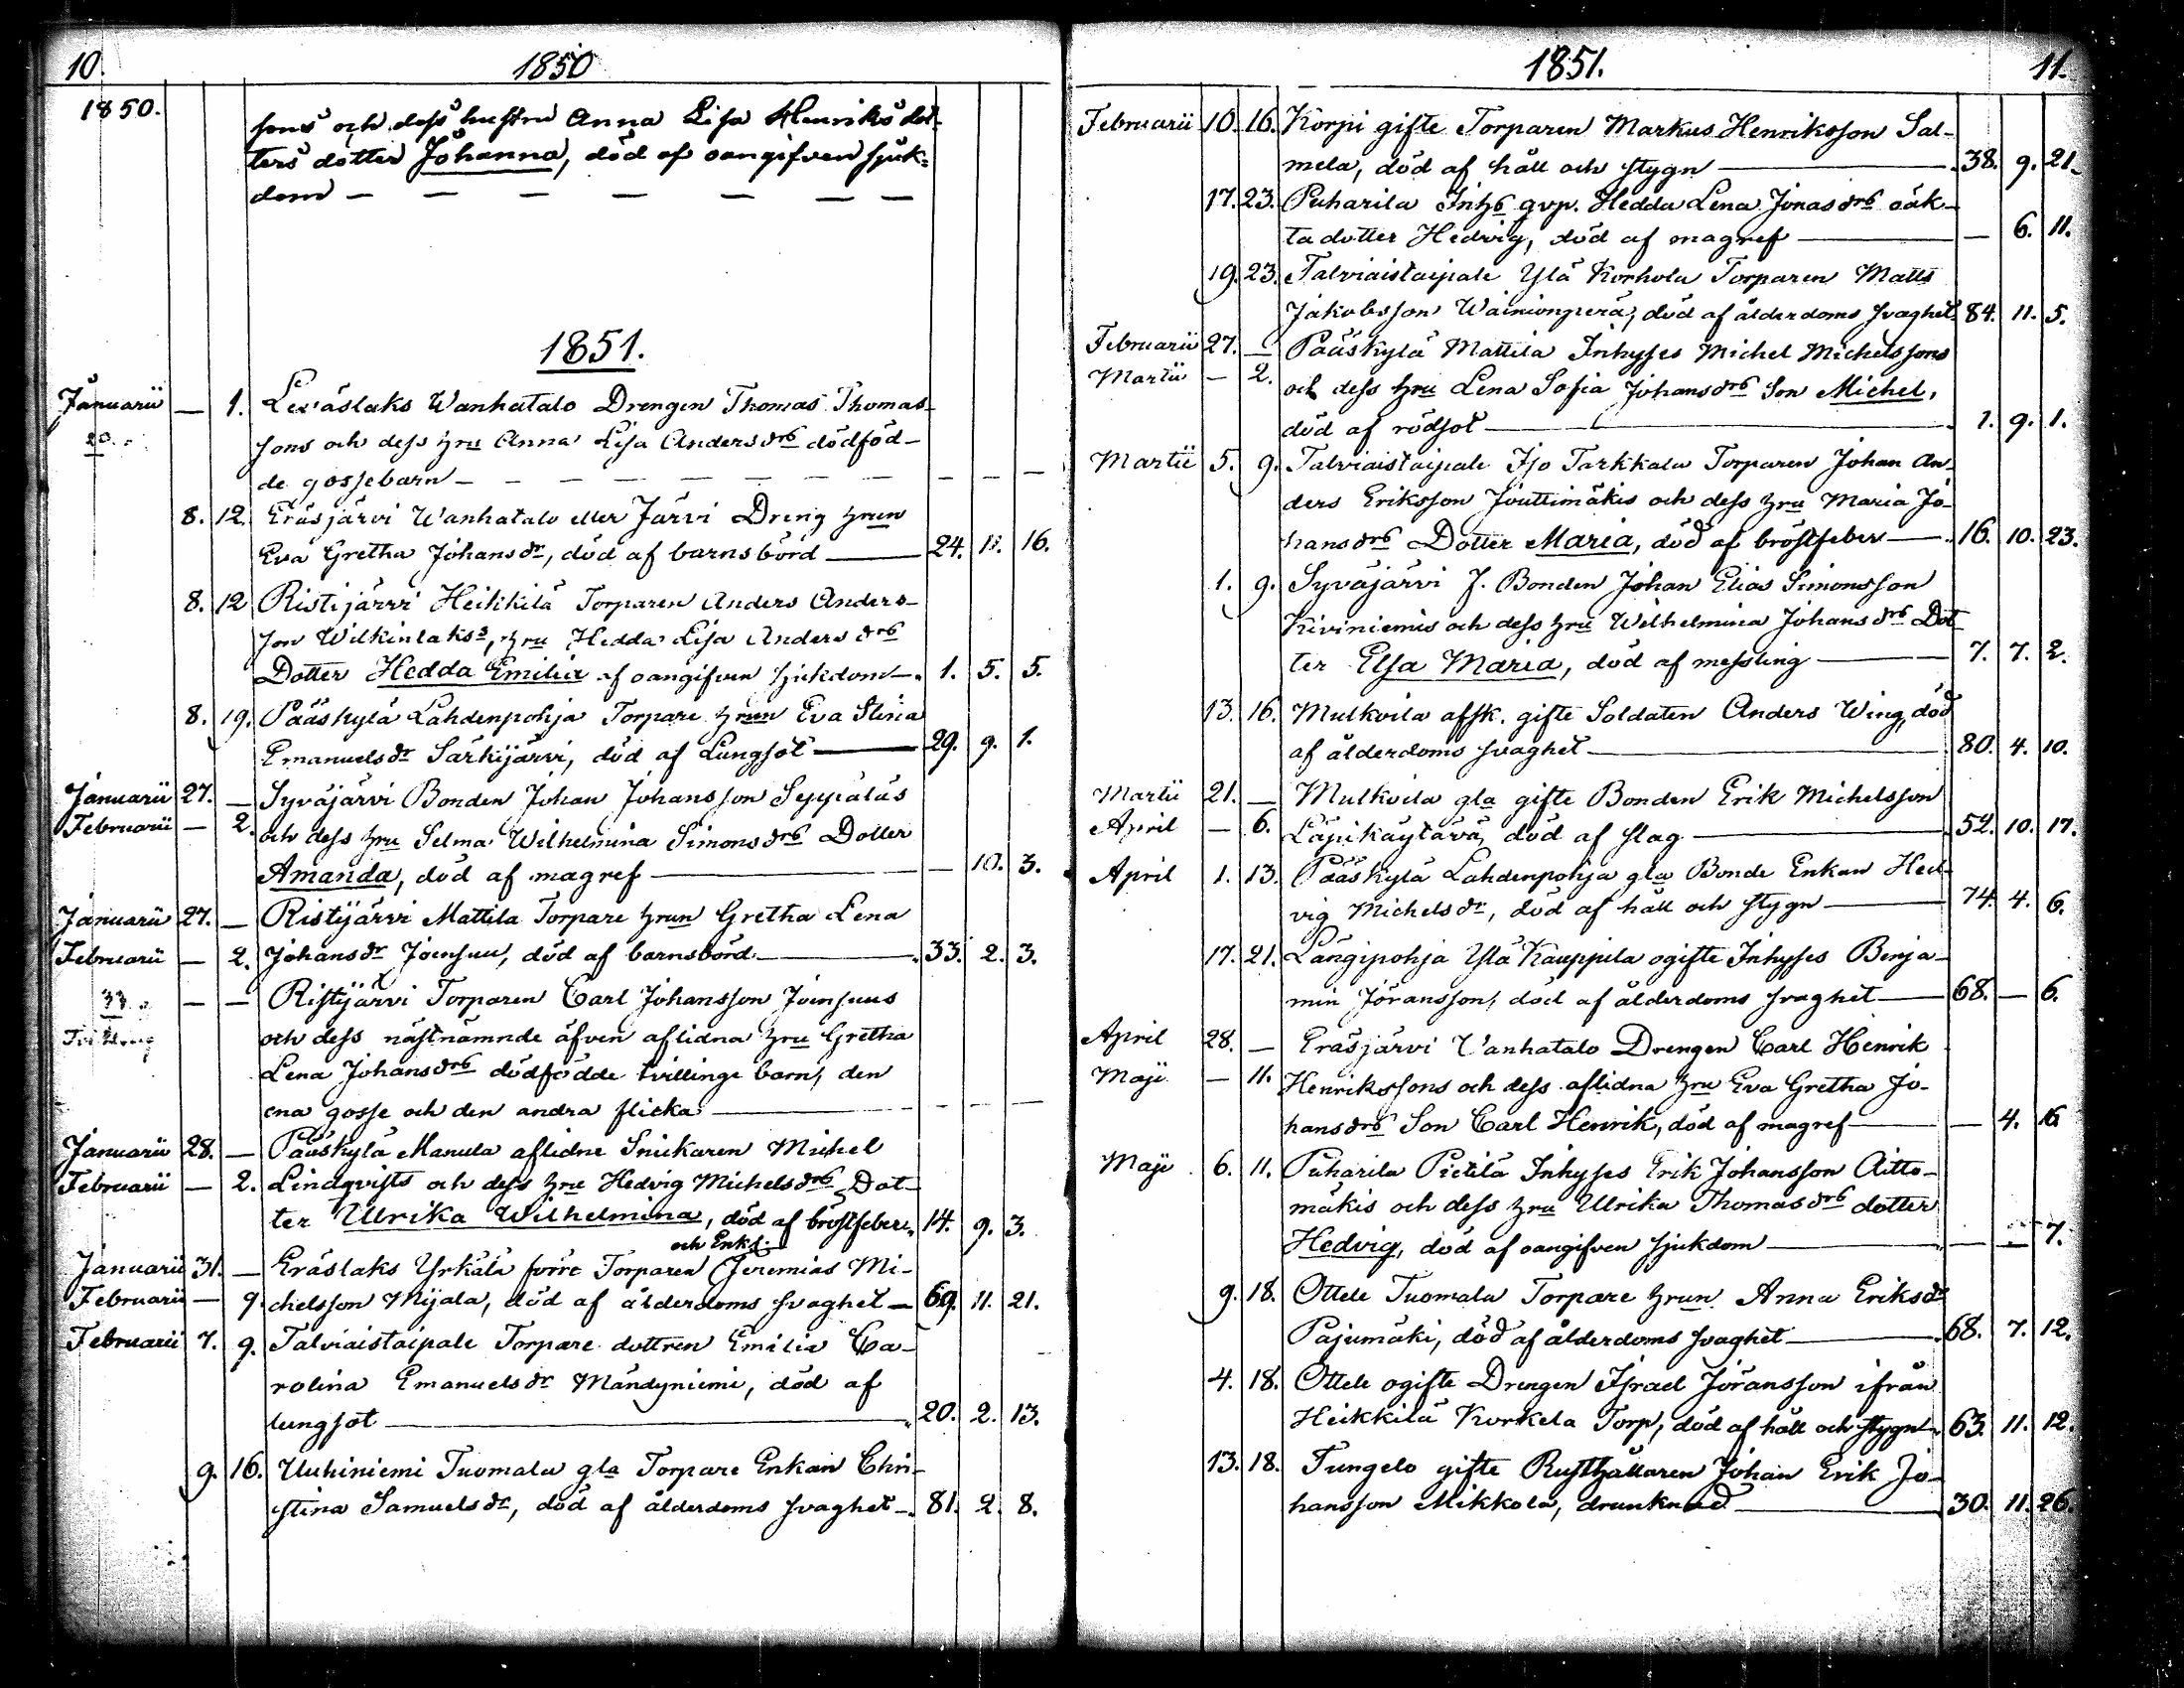 10. 1850
1850.
sons och dess hustru Anna Lisa Henriksdot-
ters dotter Johanna, död af oangifven sjuk-
dom — — — — — — —
1851.
Januarii — 1. Leväslaks Wanhatalo Drengen Thomas Thomas-
sons och dess hru Anna Lisa Anders drs dödföd-
de gossebarn — — — — — — — — — —
8. 12. Eräsjärvi Wanhatalo eller Järvi Dreng hrun
Eva Gretha Johans dr, död af barnsbörd — 24. 11. 16.
8. 12 Ristijärvi Heikkilä Torparen Anders Anders-
son Wilkinlaks, hru Hedda Lisa Anders drs
Dotter Hedda Emilia af oangifven sjukdom — 1. 5. 5.
8. 19. Pääskylä Lahdenpohja Torpare hrun Eva Stina
Emanuels dr Särkijärvi, död af Lungsot — 29. 9. 1.
Januarii 27. — Syväjärvi Bonden Johan Johansson Seppäläs
Februarii — 2. och dess hru Selma Wilhelmina Simons drs Dotter
Amanda, död af magref — — 10. 3.
Januarii 27. — Ristijärvi Mattila Torpare hrun Gretha Lena
Februarii — 2. Johans dr Joensuu, död af barnsbörd — 33. 2. 3.
— — Ristijärvi Torparen Carl Johansson Joensuus
och dess nästnämnde äfven aflidna hru Gretha
Lena Johans drs dödfödde tvillinge barn, den
ena gosse och den andra flicka — — — —
Januarii 28. — Pääskylä Manula aflidne Snickaren Michel
Februarii — 2. Lindqvists och dess hru Hedvig Michels drs Dot-
ter Ulrika Wilhelmina, död af bröstfeber 14. 9. 3.
och Enkl.
Januarii 31. — Eräslaks Yrkälä förre Torparen Jeremias Mi-
Februarii — 9. chelsson Mijala, död af ålderdoms svaghet — 69. 11. 21.
Februarii 7. 9. Talviaistaipale Torpare dottren Emilia Ca-
rolina Emanuels dr Mändyniemi, död af
lungsot — 20. 2. 13.
9. 16. Uuhiniemi Tuomala gla Torpare Enkan Chri-
stina Samuels dr, död af ålderdoms svaghet — 81. 2. 8.
1851. 11.
Februarii 10. 16. Korpi gifte Torparen Markus Henriksson Sal-
mela, död af håll och stygn — 38. 9. 21.
17. 23. Puharila Inhs qvp. Hedda Lena Jonas drs oäk-
ta dotter Hedvig, död af magref — — 6. 11.
19. 23. Talviaistaipale Ylä Korhola Torparen Matts
Jakobsson Wainionperä, död af ålderdoms svaghet 84. 11. 5.
Februarii 27. — Pääskylä Mattila Inhyses Michel Michelssons
Martii — 2. och dess hru Lena Sofia Johans drs Son Michel,
död af rödsot — 1. 9. 1.
Martii 5. 9. Talviaistaipale Iso Tarkkala Torparen Johan An-
ders Eriksson Jouttimäkis och dess hru Maria Jo-
hans drs Dotter Maria, död af bröstfeber — 16. 10. 23.
1. 9. Syväjärvi f. Bonden Johan Elias Simonsson
Kiviniemis och dess hru Wilhelmina Johans drs Dot-
ter Elsa Maria, död af messling — 7. 7. 2.
13. 16. Mulkoila affsk. gifte Soldaten Anders Wing, död
af ålderdoms svaghet — 80. 4. 10.
Martii 21. — Mulkoila gla gifte Bonden Erik Michelsson
April — 6. Läpikäytävä, död af slag — 52. 10. 17.
April 1. 13. Pääskylä Lahdenpohja gla Bonde Enkan Hed-
vig Michels dr, död af håll och stygn — 74. 4. 6.
17. 21. Längipohja Ylä Kauppila ogifte Inhyses Benja-
min Jöransson, död af ålderdoms svaghet — 68. — 6.
April 28. — Eräsjärvi Vanhatalo Drengen Carl Henrik
Maji — 11. Henrikssons och dess aflidna hru Eva Gretha Jo-
hans drs Son Carl Henrik, död af magref — — 4. 16
Maji 6. 11. Puharila Pietilä Inhyses Erik Johansson Aitto-
mäkis och dess hru Ulrika Thomas drs dotter
Hedvig, död af oangifven sjukdom — — — 7.
9. 18. Ottele Tuomala Torpare hrun Anna Eriks dr
Pajumäki, död af ålderdoms svaghet — 68. 7. 12.
4. 18. Ottele ogifte Drengen Israel Jöransson ifrån
Heikkilä Korkela Torp, död af håll och stygn 63. 11. 12.
13. 18. Tungelo gifte Rusthållaren Johan Erik Jo-
hansson Mikkola, drunknad — 30. 11. 26.